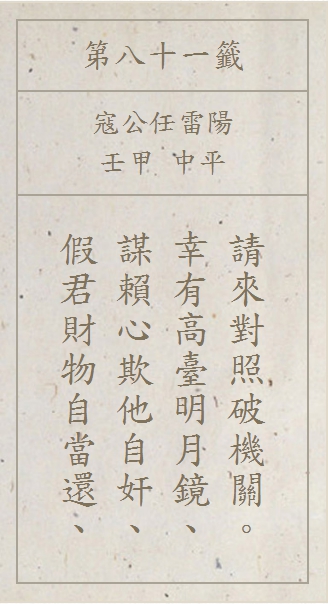 第八十一籤
寇公任雷陽
壬甲 中平
假君財物自當還、
謀賴心欺他自奸、
幸有高臺明月鏡、
請來對照破機關。